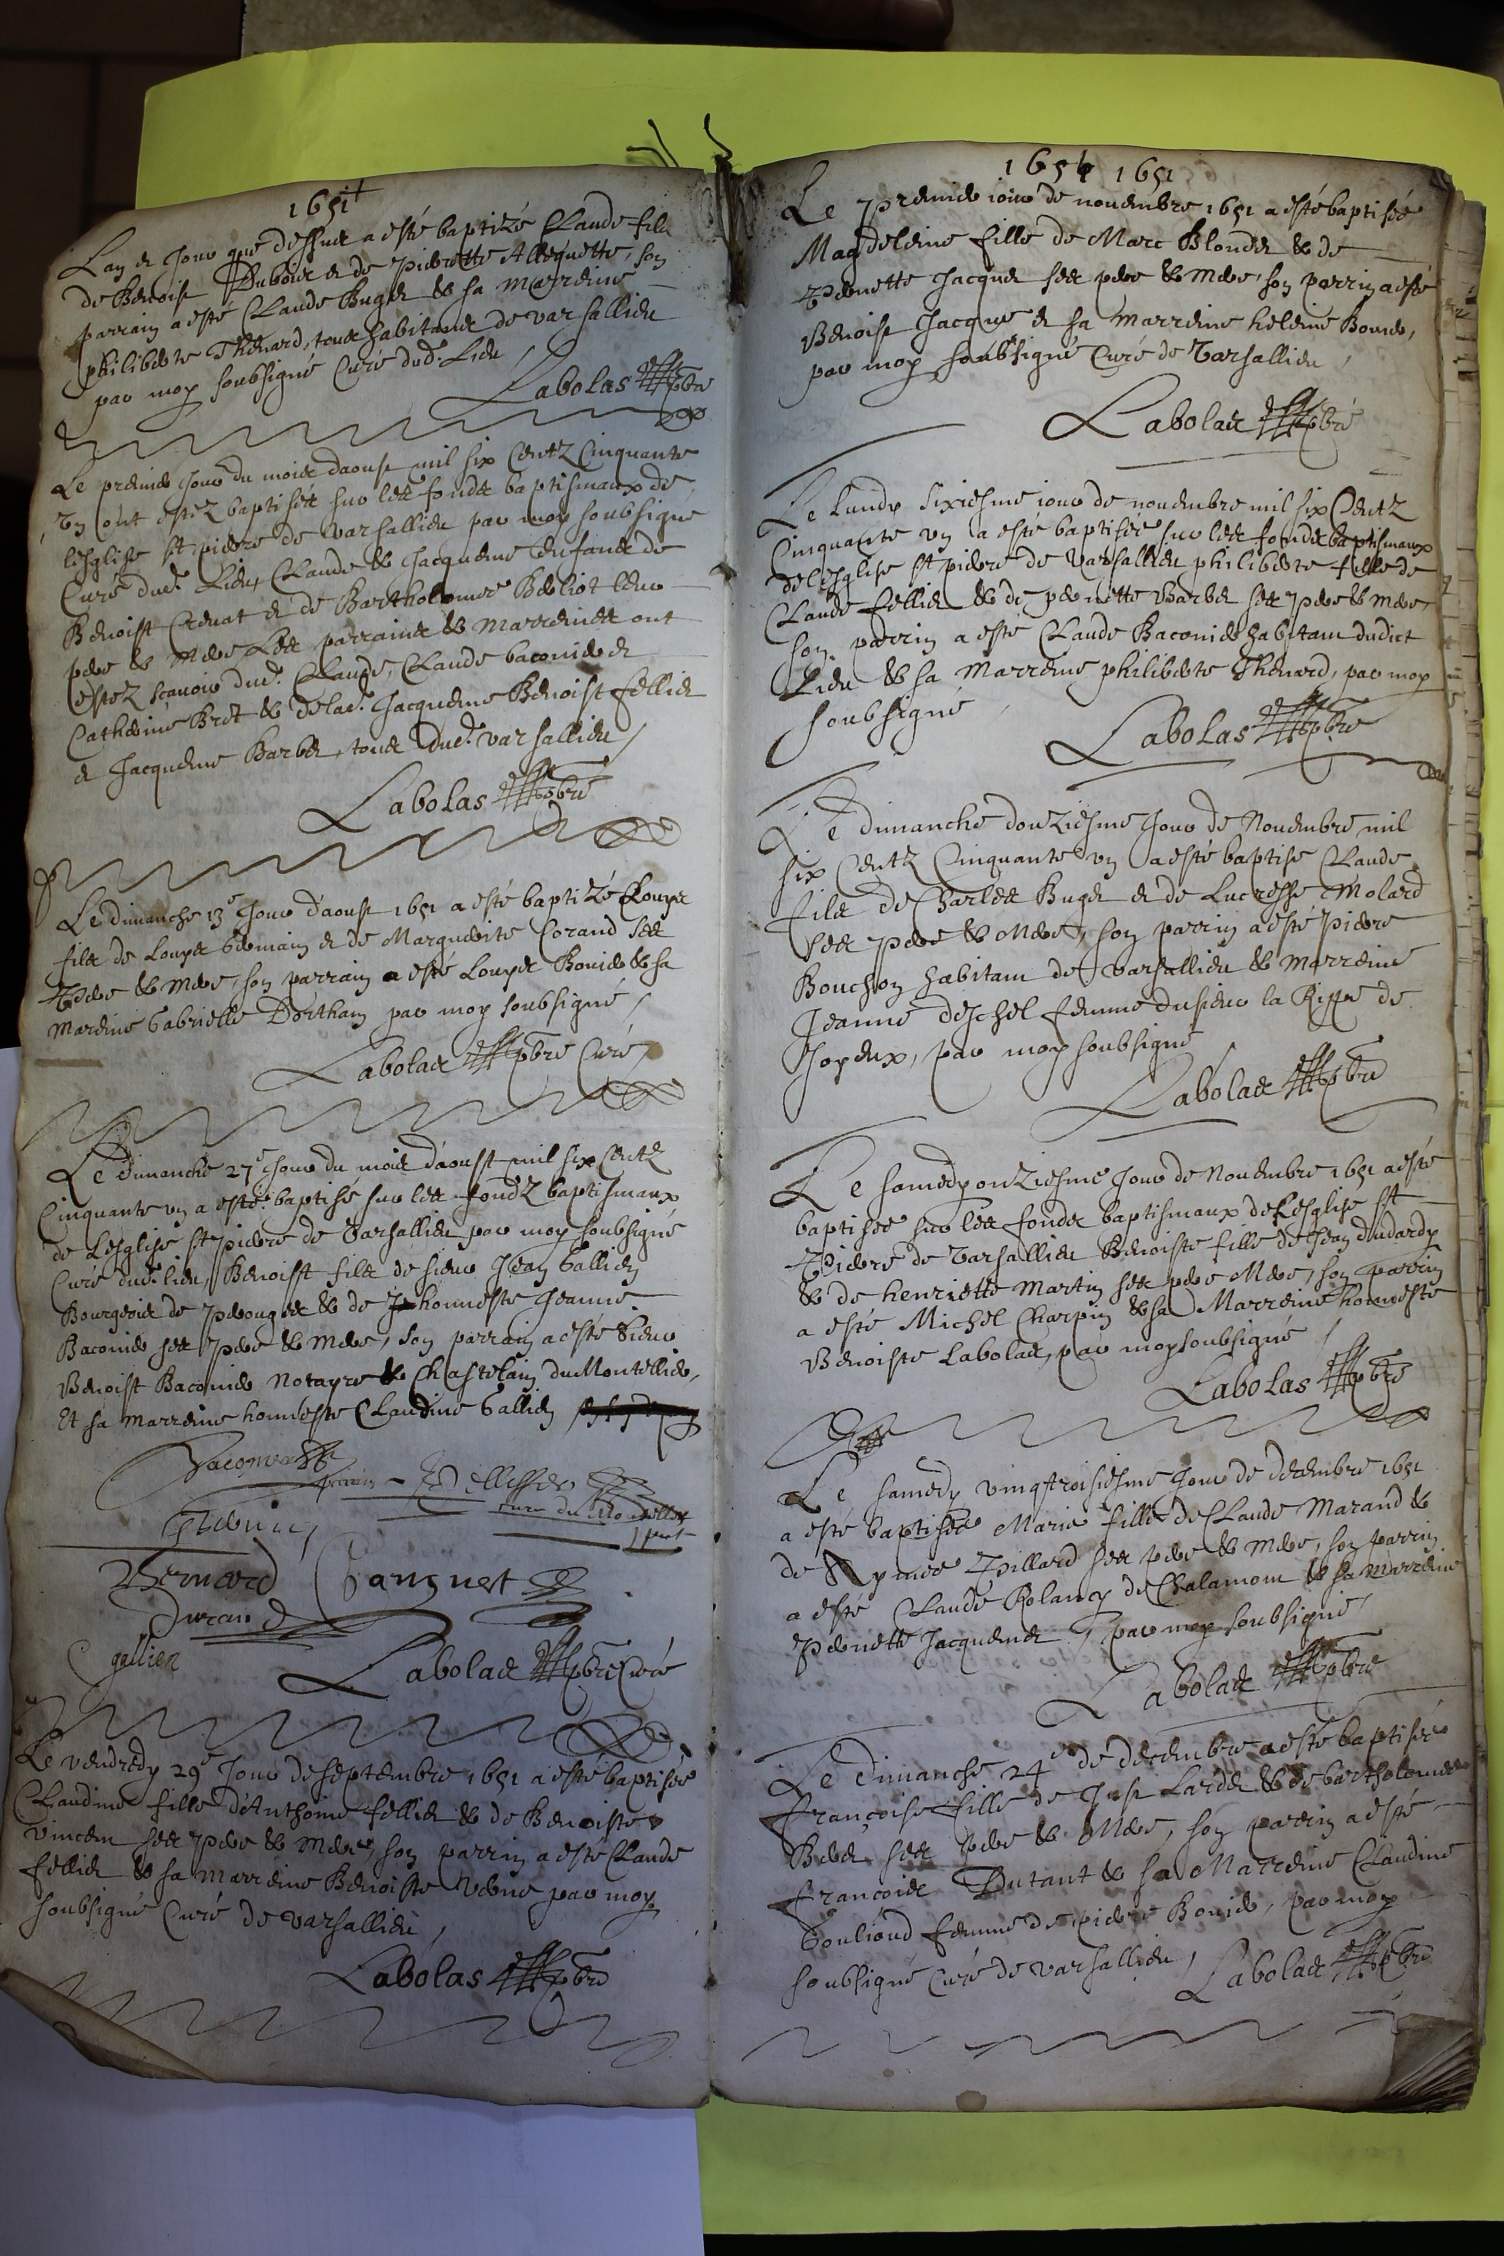 1651
Lan et Jour que dessus a esté baptizé Claude fils
de Benoist Dubois et de Pierrette Allequette, son
parrain a esté Claude Buget & sa marreine
philiberte Thenard, tous habitans de Varsallieu
par moy soubsigné Curé dud. Lieu /
Labolas pbre
Le premier Jour du mois daoust mil six Centz Cinquante
Un ont estez baptisés sur les fonds baptismaux de
lesglise st pierre de Varsallieu par moy soubsigné
Curé dud. Lieu, Claude & Jacqueme enfans de
Benoist et de Bartholomee leur
pere & Mere Les parrains & Marreines ont
estez scavoir dud. Claude, Claude baconier et
Catherine Bret & de lad. Jacqueme Benoist fellier
et Jacqueme Barbet, tous dud. Varsallieu /
Labolas pbre
Le dimanche 13e Jour d'aoust 1651 a esté baptizé Louys
fils de Louys Germain et de Marguerite Corand ses
Pere & Mere, son parrain a esté Louys Bonier & sa
Mareine Gabrielle Dortham par moy soubsigné /
Labolas pbre Curé /
Le Dimanche 27e Jour du mois d'aoust mil six Centz
Cinquante un a esté baptisé sur les fondz baptismaux
de Lesglise st Pierre de Varsallieu par moy soubsigné
Curé dud. lieu, Benoist fils de sieur Jean Gallien
Bourgeois de Perouges & de honneste Jeanne
Baconier ses Pere & Mere, son parrain a esté Sieur
Benoist Baconier Notayre & Chastelain du Montellier,
Et sa Marreine honneste Claudine Gallien
Baconier
parrain
curé du
Bernard Janguet
Durand
gallien
Labolas pbre Curé
Le vendredy 29e Jour de septembre 1651 a esté baptisée
Claudine fille d'Anthoine fellier & de Benoiste
Vincent ses Pere & Mere, son parrin a esté Claude
fellier & sa Marreine Benoiste par moy
soubsigné Curé de Varsallieu /
Labolas pbre
1651 1651
Le Premier iour de novembre 1651 a esté baptisée
Magdeleine fille de Marc Blondet & de
Pernette Jacques ses pere & Mere, son parrin a esté
Benoist Jacques et sa Marreine heleine Bonier,
par moy soubsigné Curé de Varsallieu /
Labolas pbre
Le Lundy sixiesme iour de novembre mil six Centz
Cinquante un a esté baptisée sur les fonds baptismaux
de lesglise st pierre de Varsallieu philiberte fille de
Claude fellier & de pernette Barbet ses Pere & Mere,
son parrin a esté Claude Baconier habitant dudict
Lieu & sa Marreine philiberte Thenard, par moy
soubsigné /
Labolas pbre
Le dimanche douziesme Jour de Novembre mil
six Centz Cinquante un a esté baptisé Claude
fils de Charles Buget et de Lucresse Molard
ses Pere & Mere, son parrin a esté Pierre
Bouchon habitant de Varsallieu & Marreine
Jeanne deschel femme du sieur la Rippe de
Joyeux, par moy soubsigné
Labolas pbre
Le samedy onziesme Jour de Novembre 1651 a esté
baptisée sur les fonds baptismaux de Lesglise st
Pierre de Varsallieu Benoiste fille de Jean Dudardy
& de henriette Martin ses pere Mere, son parrin
a esté Michel Charpin & sa Marreine honneste
Benoiste Labolas, par moy soubsigné /
Labolas pbre
Le samedy vingtroisiesme Jour de decembre 1651
a esté baptisée Marie fille de Claude Marand &
de Aymée Pillard ses pere & mere, son parrin
a esté Claude Rolancy de Chalamont & sa Marreine
Pernette Jacquemet, par moy soubsigné /
Labolas pbre
Le Dimanche 24e de decembre a esté baptisée
Françoise fille de Just Lardet & de bartholomee
ses pere & Mere, son parrin a esté
François Dutant & sa Marreine Claudine
Gouliond femme de pierre Bonier, par moy
soubsigné Curé de Varsallieu, Labolas pbre